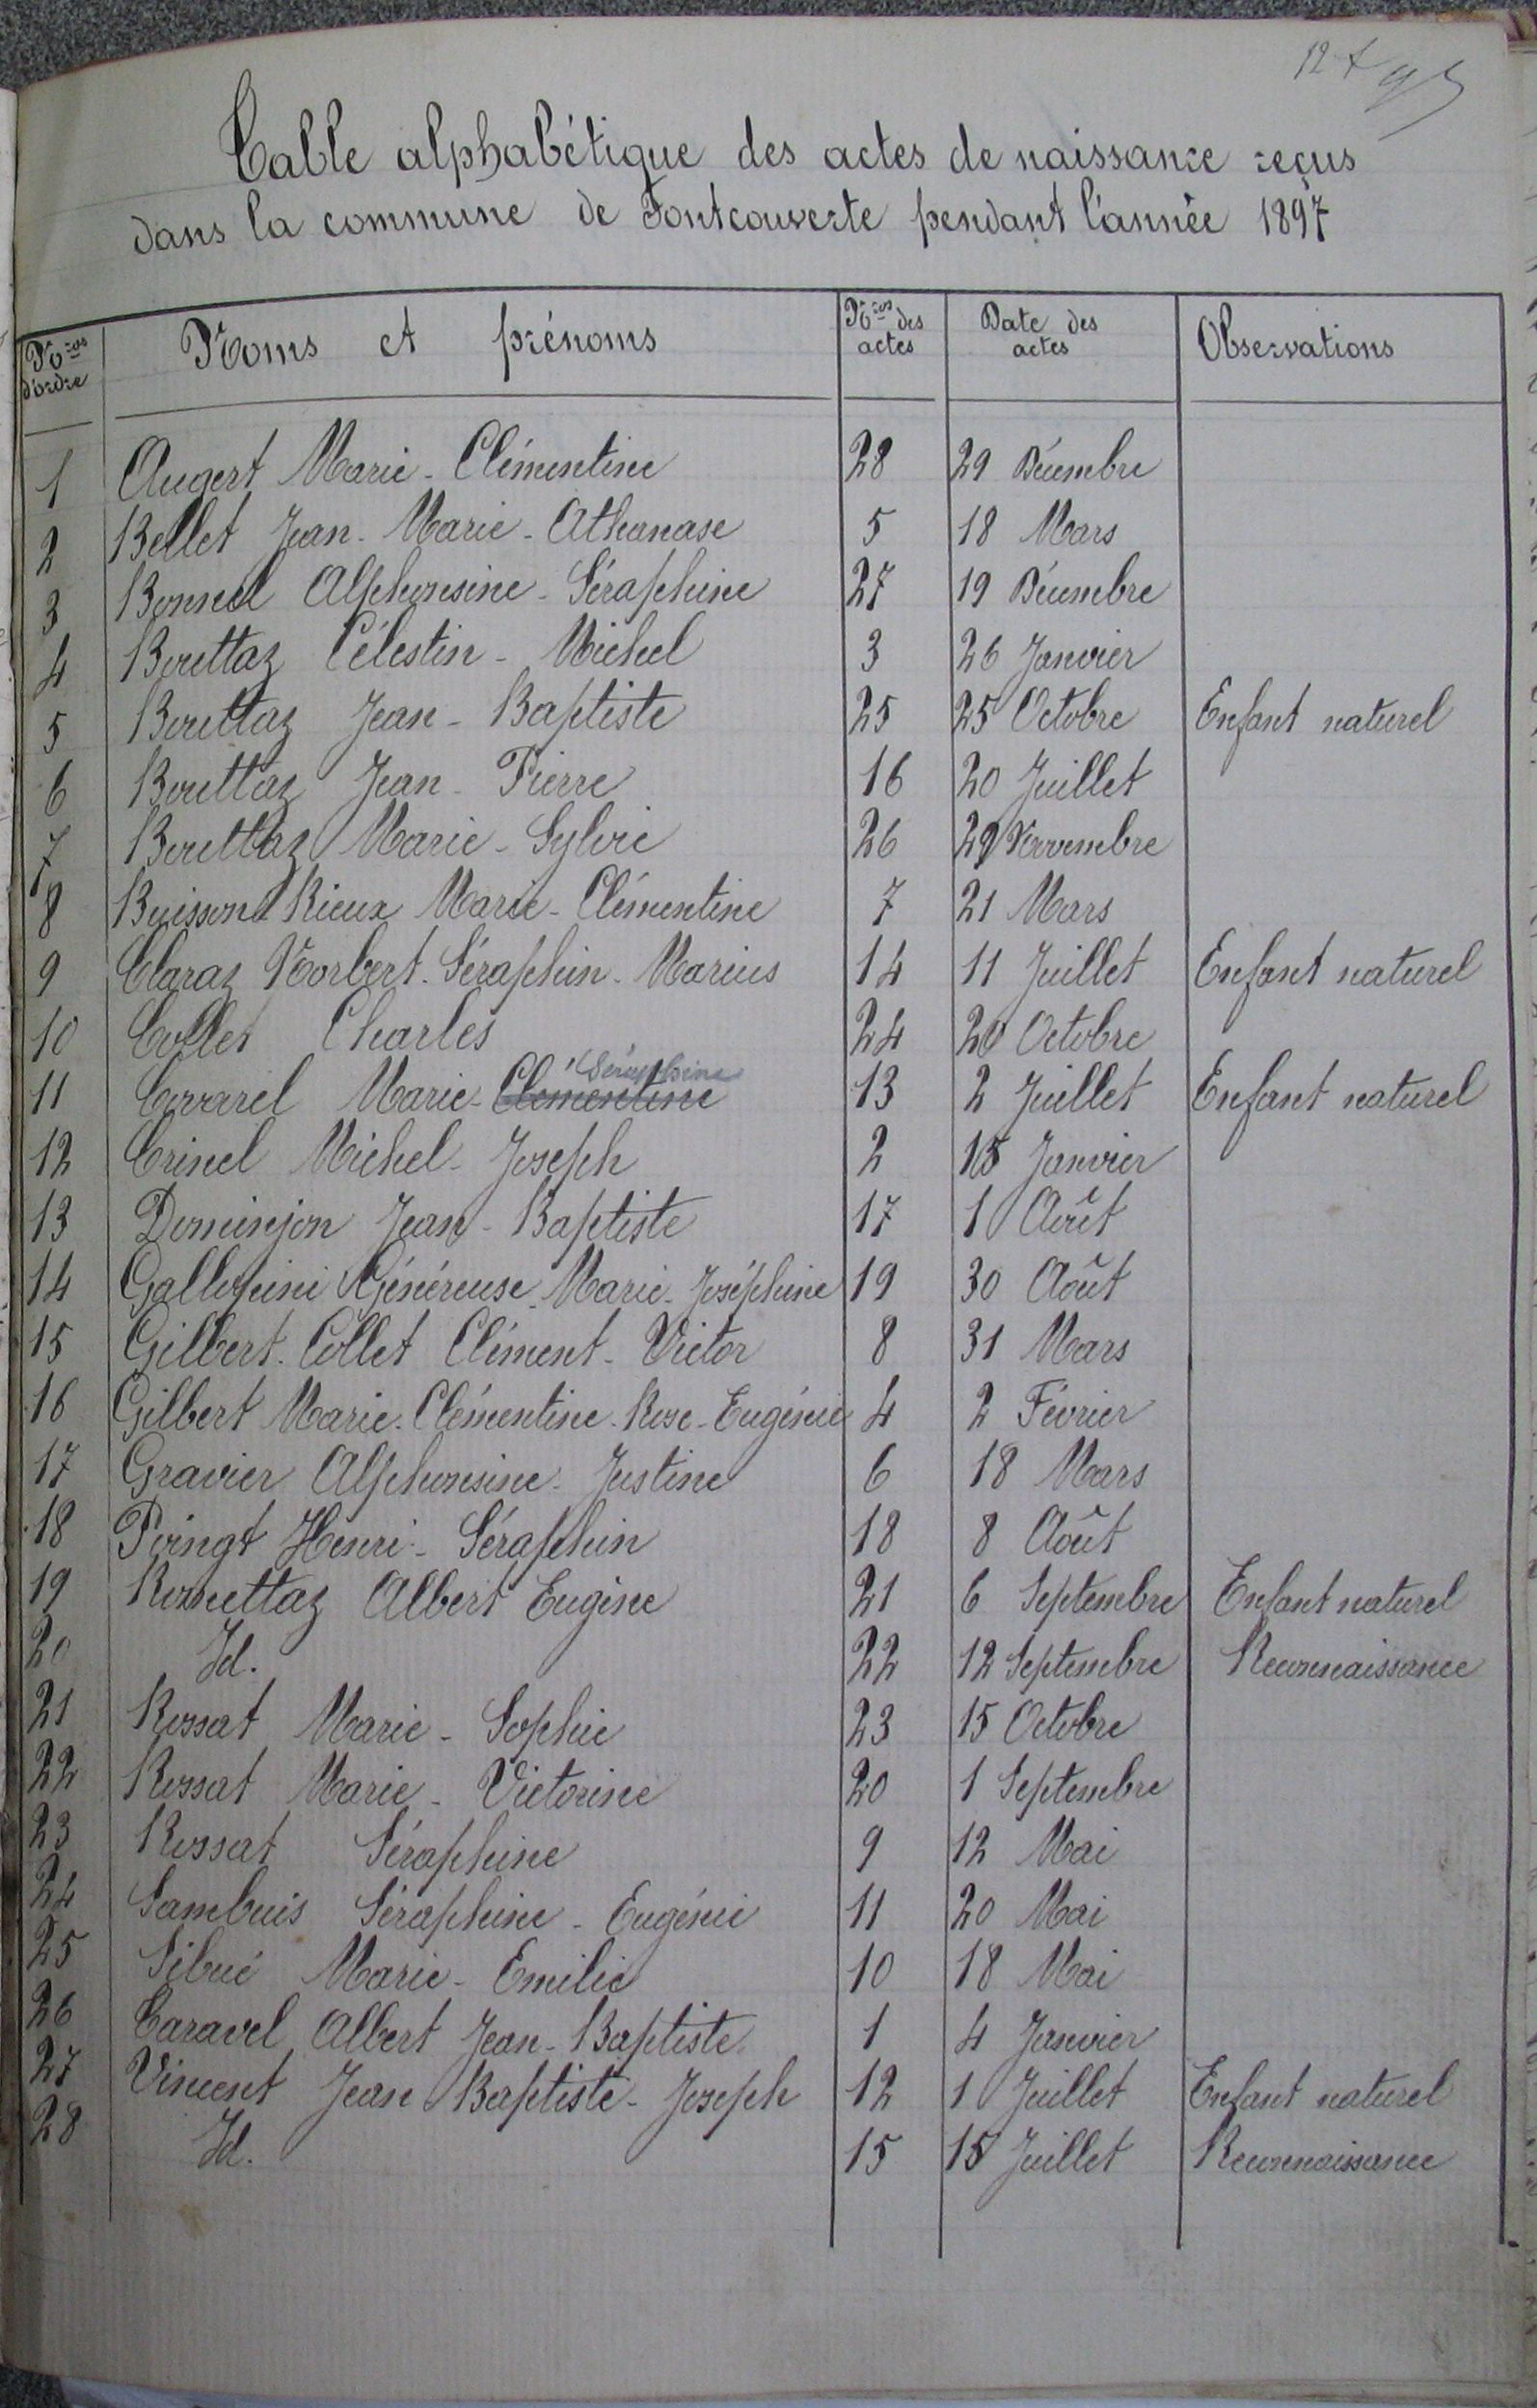 Table alphabétique des actes de naissance reçus
dans la commune de Fontcouverte pendant l'année 1897
Nros d'ordre Noms et prénoms Nros des actes Date des actes Observations
1 Augert Marie - Clémentine 28 29 Décembre
2 Bellet Jean - Marie - Athanase 5 18 Mars
3 Bonnel Alphonsine - Séraphine 27 19 Décembre
4 Bouttaz Célestin - Michel 3 26 Janvier
5 Bouttaz Jean - Baptiste 25 25 Octobre Enfant naturel
6 Bouttaz Jean - Pierre 16 20 Juillet
7 Bouttaz Marie - Sylvie 26 29 Novembre
8 Buisson Rieux Marie - Clémentine 7 21 Mars
9 Claraz Norbert - Séraphin - Marius 14 11 Juillet Enfant naturel
10 Collet Charles 24 20 Octobre
11 Covarel Marie - Clémentine Séraphine 13 2 Juillet Enfant naturel
12 Crinel Michel - Joseph 2 18 Janvier
13 Dominjon Jean - Baptiste 17 1 Août
14 Généreuse - Marie - Joséphine 19 30 Août
15 Gilbert - Collet Clément - Victor 8 31 Mars
16 Gilbert Marie - Clémentine - Rose - Eugénie 4 2 Février
17 Gravier Alphonsine - Justine 6 18 Mars
18 Poingt Henri - Séraphin 18 8 Août
19 Romettaz Albert Eugène 21 6 Septembre Enfant naturel
20 Id. 22 12 Septembre Reconnaissance
21 Rossat Marie - Sophie 23 15 Octobre
22 Rossat Marie - Victorine 20 1 Septembre
23 Rossat Séraphine 9 12 Mai
24 Sambuis Séraphine - Eugénie 11 20 Mai
25 Sibué Marie - Emilie 10 18 Mai
26 Taravel Albert Jean - Baptiste 1 4 Janvier
27 Vincent Jean Baptiste - Joseph 12 1 Juillet Enfant naturel
28 Id. 15 15 Juillet Reconnaissance